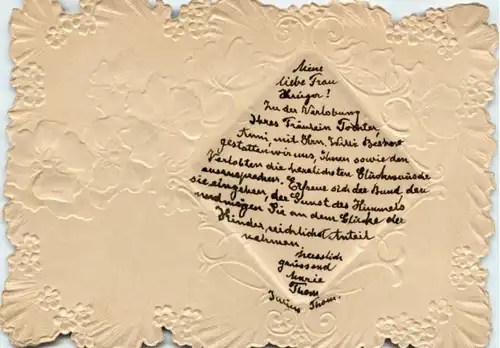 Meine
liebe Frau
Krüger!
Zu der Verlobung
Ihres Fräulein Tochter,
Anni, mit Hrn. Willi Beckers
gestatten wir uns, Ihnen sowie den
Verlobten die herzlichsten Glückwünsche
auszusprechen. Erfreue sich der Bund, den
sie eingehen, der Gunst des Himmels
und mögen Sie an dem Glücke der
Kinder, reichlichst Anteil
nehmen.
Herzlich
grüssend
Maria
Thom
Julius Thom.